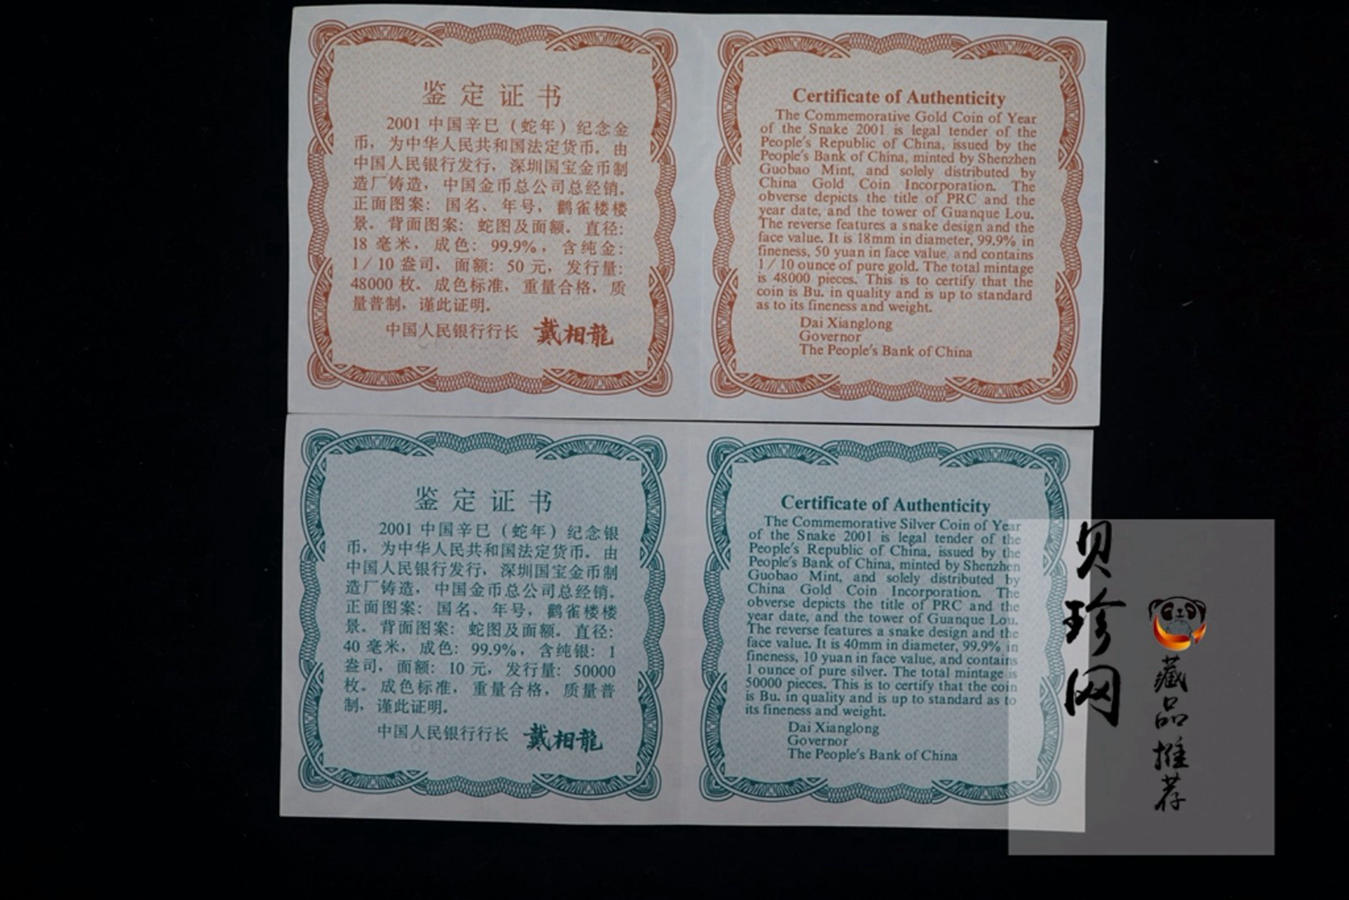 鉴定证书
2001 中国辛巳（蛇年）纪念金
币，为中华人民共和国法定货币。由
中国人民银行发行，深圳国宝金币制
造厂铸造，中国金币总公司总经销。
正面图案：国名、年号，鹳雀楼楼
景。背面图案：蛇图及面额。直径：
18 毫米，成色：99.9%，含纯金：
1／10 盎司，面额：50 元，发行量：
48000 枚。成色标准，重量合格，质
量普制，谨此证明。
中国人民银行行长 戴相龍
Certificate of Authenticity
The Commemorative Gold Coin of Year
of the Snake 2001 is legal tender of the
People's Republic of China, issued by the
People's Bank of China, minted by Shenzhen
Guobao Mint, and solely distributed by
China Gold Coin Incorporation. The
obverse depicts the title of PRC and the
year date, and the tower of Guanque Lou.
The reverse features a snake design and the
face value. It is 18mm in diameter, 99.9% in
fineness, 50 yuan in face value, and contains
1／10 ounce of pure gold. The total mintage
is 48000 pieces. This is to certify that the
coin is Bu. in quality and is up to standard
as to its fineness and weight.
Dai Xianglong
Governor
The People's Bank of China
鉴定证书
2001 中国辛巳（蛇年）纪念银
币，为中华人民共和国法定货币。由
中国人民银行发行，深圳国宝金币制
造厂铸造，中国金币总公司总经销。
正面图案：国名、年号，鹳雀楼楼
景。背面图案：蛇图及面额。直径：
40 毫米，成色：99.9%，含纯银：1
盎司，面额：10 元，发行量：50000
枚。成色标准，重量合格，质量普
制，谨此证明。
中国人民银行行长 戴相龍
Certificate of Authenticity
The Commemorative Silver Coin of Year
of the Snake 2001 is legal tender of the
People's Republic of China, issued by the
People's Bank of China, minted by Shenzhen
Guobao Mint, and solely distributed by
China Gold Coin Incorporation. The
obverse depicts the title of PRC and the
year date, and the tower of Guanque Lou.
The reverse features a snake design and the
face value. It is 40mm in diameter, 99.9% in
fineness, 10 yuan in face value, and contains
1 ounce of pure silver. The total mintage is
50000 pieces. This is to certify that the coin
is Bu. in quality and is up to standard as to
its fineness and weight.
Dai Xianglong
Governor
The People's Bank of China
贝珍网
藏品推荐